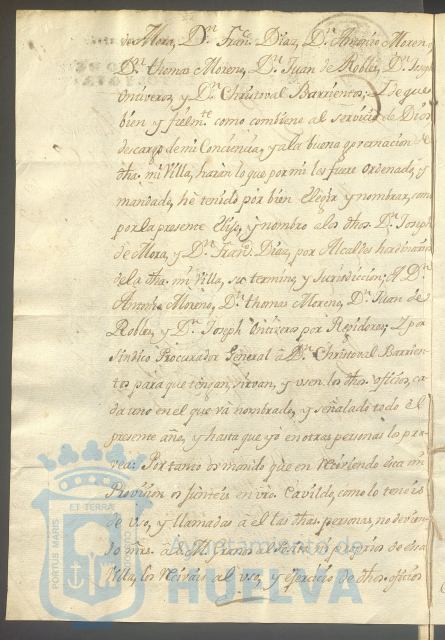 de Mora, Dn. Franco. Diaz, Dn. Antonio Moreno,
Dn. thomas Moreno, Dn. Juan de Robles, Dn. Joseph
Ontiveros, y Dn. Christoval Barrientos; I de que
bien y fielmte. como combiene al servicio de Dios
descargo de mi Conciencia, y a la buena governacion de
dha. mi Villa, harán lo que por mi les fuere ordenado, y
mandado, hè tenido por bien elegir y nombrar, como
por la presente elijo, y nombro a los dhos. Dn. Joseph
de Mora, y Dn. Franco. Diaz, por Alcaldes hordinarios
de la dha. mi Villa, su termino, y Jurisdiccion; A Dn.
Antonio Moreno, Dn. thomas Moreno, Dn. Juan de
Robles, y Dn. Joseph Ontiveros por Regidores; I por
Sindico Procurador General à Dn. Christoval Barrien-
tos para que tengan, sirvan, y usen los dhos. oficios, ca-
da uno en el que và nombrado, y señalado todo el
presente año, y hasta que yò en otras personas los pro-
vea: Por tanto os mando que en reciviendo esta mi
Provision os junteis en vro. Cavildo, como lo teneis
de uso, y llamadas à el las dhas. personas, no
de esa
Villa, los recivais al uso, y exercicio de dhos. oficios
PORTUS MARIS
ET TERRAE
Ayuntamiento de
HUELVA